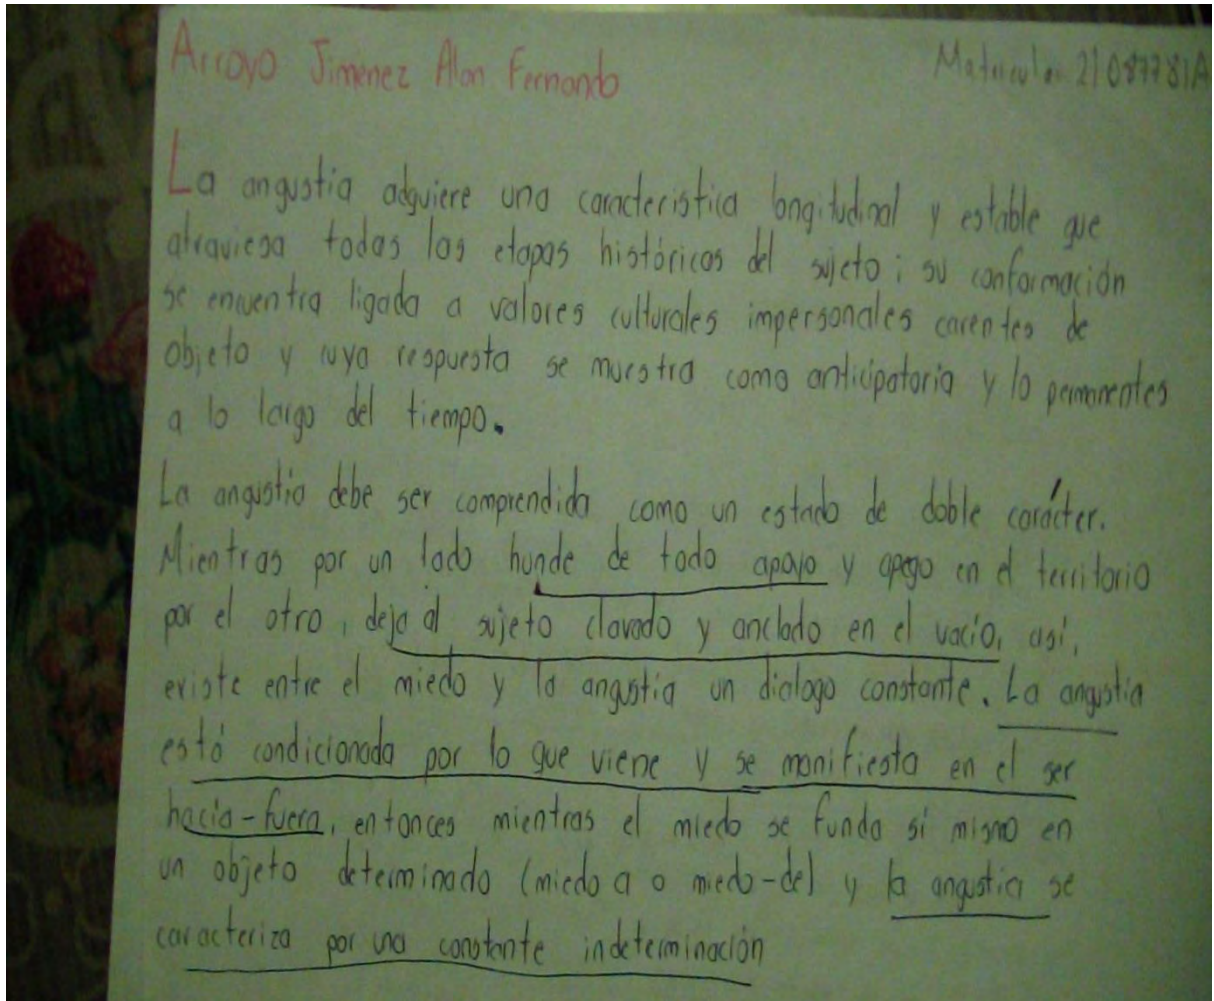 Arroyo Jimenez Alan Fernando
Matricula: 21087781A
La angustia adquiere una caracteristica longitudinal y estable que
atraviesa todas las etapas históricas del sujeto; su conformación
se encuentra ligada a valores culturales impersonales carentes de
objeto y cuya respuesta se muestra como anticipatoria y lo permanentes
a lo largo del tiempo.
La angustia debe ser comprendida como un estado de doble carácter.
Mientras por un lado hunde de todo apoyo y apego en el territorio
por el otro, deja al sujeto clavado y anclado en el vacío, así,
existe entre el miedo y la angustia un dialogo constante. La angustia
está condicionada por lo que viene y se manifiesta en el ser
hacia-fuera, entonces mientras el miedo se funda si mismo en
un objeto determinado (miedo a o miedo-de) y la angustia se
caracteriza por una constante indeterminación